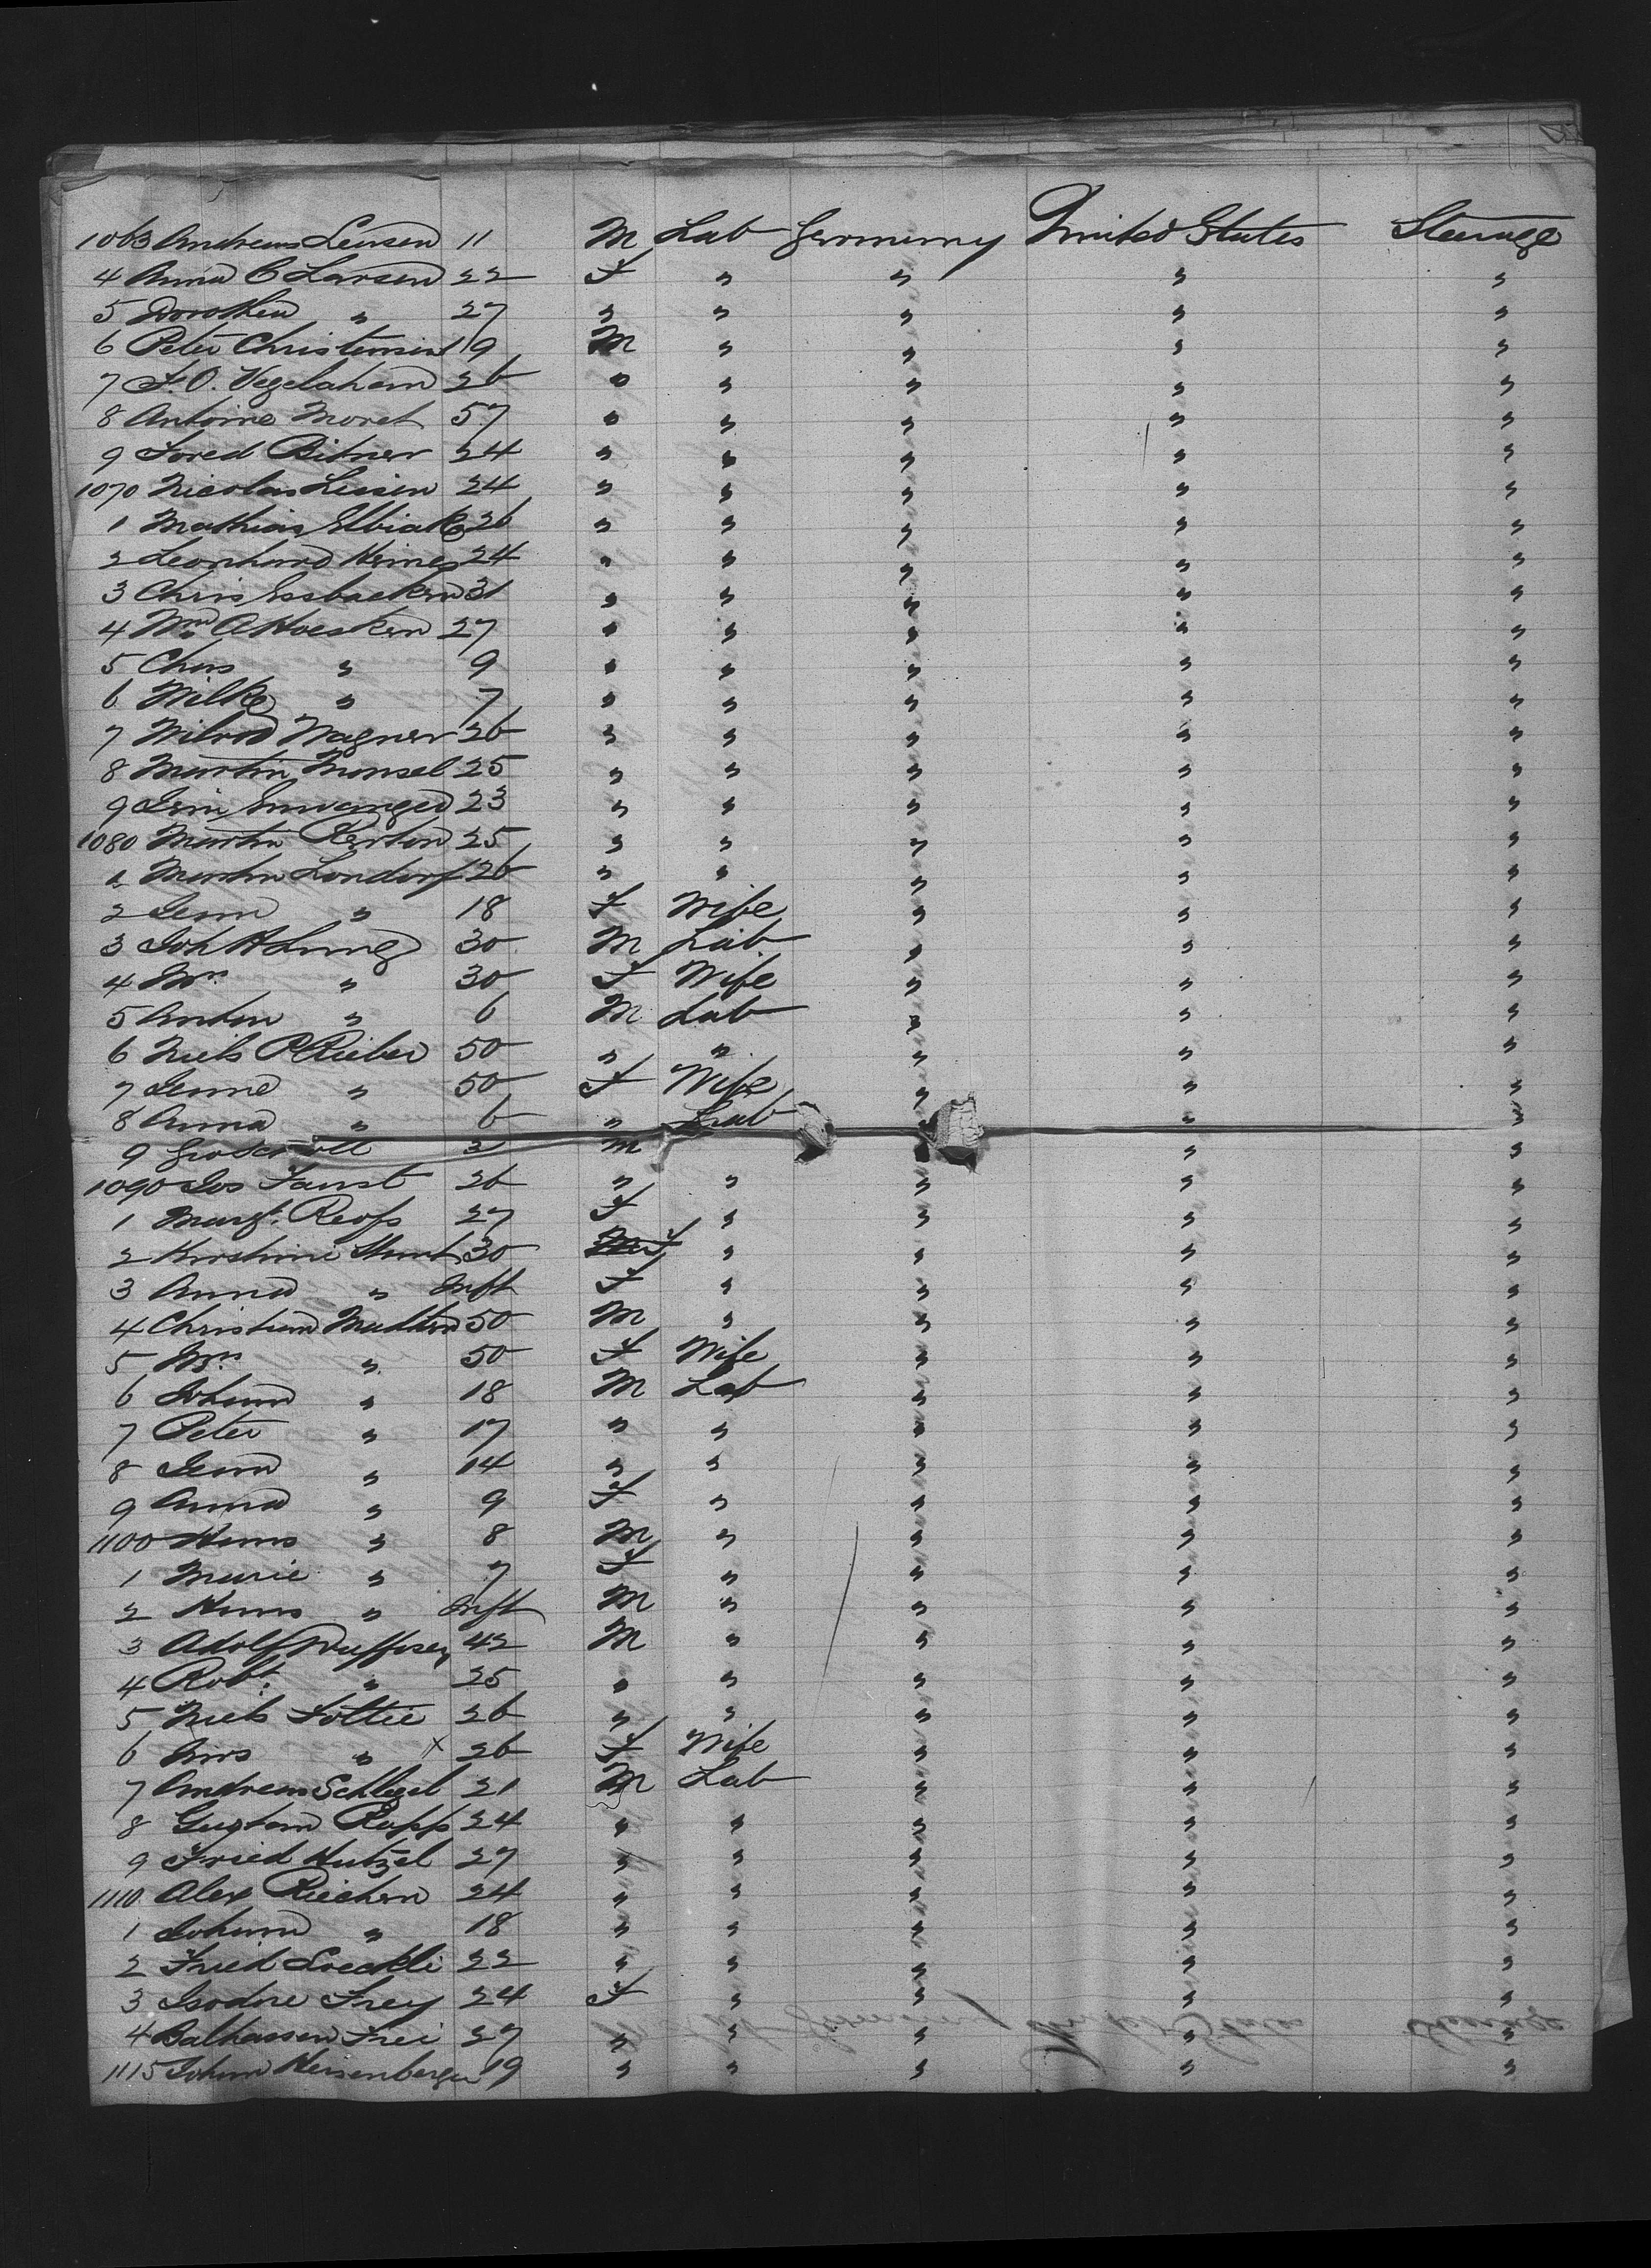 1063 Andreas Lensen 11 M Lab Germany United States Steerage
4 Anna C Larsen 22 F " " " "
5 Dorothea " 27 " " " " "
6 Peter Christensen 19 M " " " "
7 F. O. Vegelahan 26 " " " " "
8 Antoine Moret 57 " " " " "
9 Fred Bitner 24 " " " " "
1070 Nicolas 24 " " " " "
1 Mathias 26 " " " " "
2 Leonhard Heines 24 " " " " "
3 Chris 31 " " " " "
4 Wm A Hoesken 27 " " " " "
5 Chas " 9 " " " " "
6 Wilke " 7 " " " " "
7 Wagner 26 " " " " "
8 Martin Monsel 25 " " " " "
9 23 " " " " "
1080 Martin Kerton 25 " " " " "
1 Martin Londorf 26 " " " " "
2 " 18 F Wife " " "
3 Joh H 30 M Lab " " "
4 Mrs " 30 F Wife " " "
5 Anton " 6 M Lab " " "
6 Niels P 50 " " " " "
7 " 50 F Wife " " "
8 Anna " 6 " Lab " " "
9 M " " "
1090 Jos Faust 26 " " " " "
1 Margt. 27 F " " " "
2 30 F " " " "
3 Anna " Inft F " " " "
4 Christian 50 M " " " "
5 Mrs " 50 F Wife " " "
6 Johann " 18 M Lab " " "
7 Peter " 17 " " " " "
8 " 14 " " " " "
9 Anna " 9 F " " " "
1100 Hans " 8 M " " " "
1 Marie " 7 F " " " "
2 Hans " Inft M " " " "
3 Adolf 42 M " " " "
4 Robt. " 25 " " " " "
5 Niels Lottie 26 " " " " "
6 Mrs " x 26 F Wife " " "
7 Andreas Schlegel 21 M Lab " " "
8 Gustav Rapp 24 " " " " "
9 Fried Hutzel 27 " " " " "
1110 Alex 24 " " " " "
1 Johann " 18 " " " " "
2 Fried 22 " " " " "
3 Isodore Frey 24 F " " " "
4 Balthasser Frei 27 " " " " "
1115 Johann Heisenberger 19 " " " " "